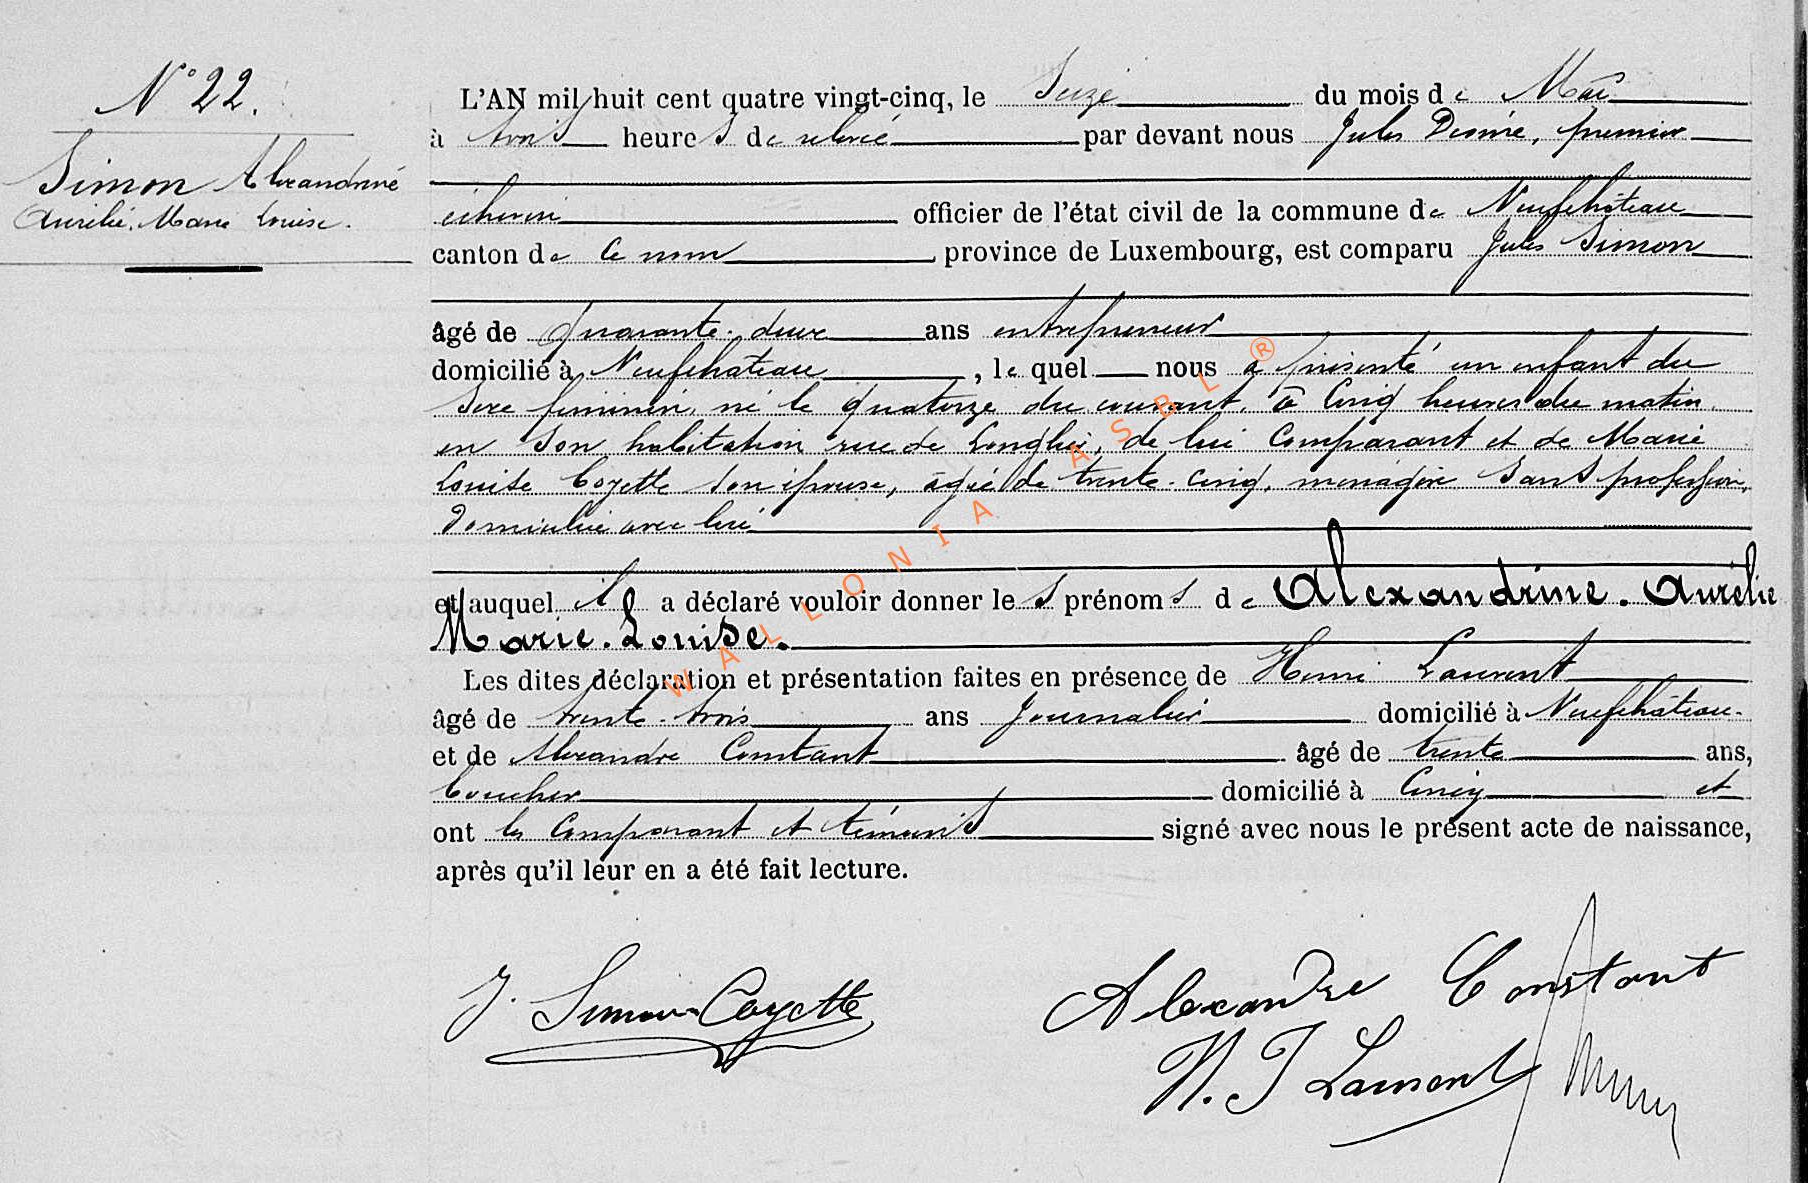 N° 22.
Simon Alexandrine
Aurélie, Marie Louise.
L'AN mil huit cent quatre vingt-cinq, le Seize du mois de Mai
à trois heures de relevé par devant nous Jules, premier
échevin officier de l'état civil de la commune de Neufchâteau
canton de ce nom, province de Luxembourg, est comparu Jules Simon
âgé de quarante-deux ans entrepreneur
domicilié à Neufchâteau, le quel nous a présenté un enfant du
sexe féminin, né le quatorze du courant, à Cinq heures du matin
en son habitation rue de Longlier, de lui Comparant et de Marie
Louise Coyette son épouse, âgée de trente-cinq, ménagère Sans profession,
domiciliée avec lui
et auquel il a déclaré vouloir donner les prénoms de Alexandrine. Aurélie
Marie. Louise.
Les dites déclaration et présentation faites en présence de Henri Laurent
âgé de trente-trois ans Journalier domicilié à Neufchâteau
et de Alexandre Constant âgé de trente ans,
boucher domicilié à et
ont les Comparant et témoins signé avec nous le présent acte de naissance,
après qu'il leur en a été fait lecture.
J. Simon-Coyette
Alexandre Constant
H. J Laurent
WALLONIA ASBL ®